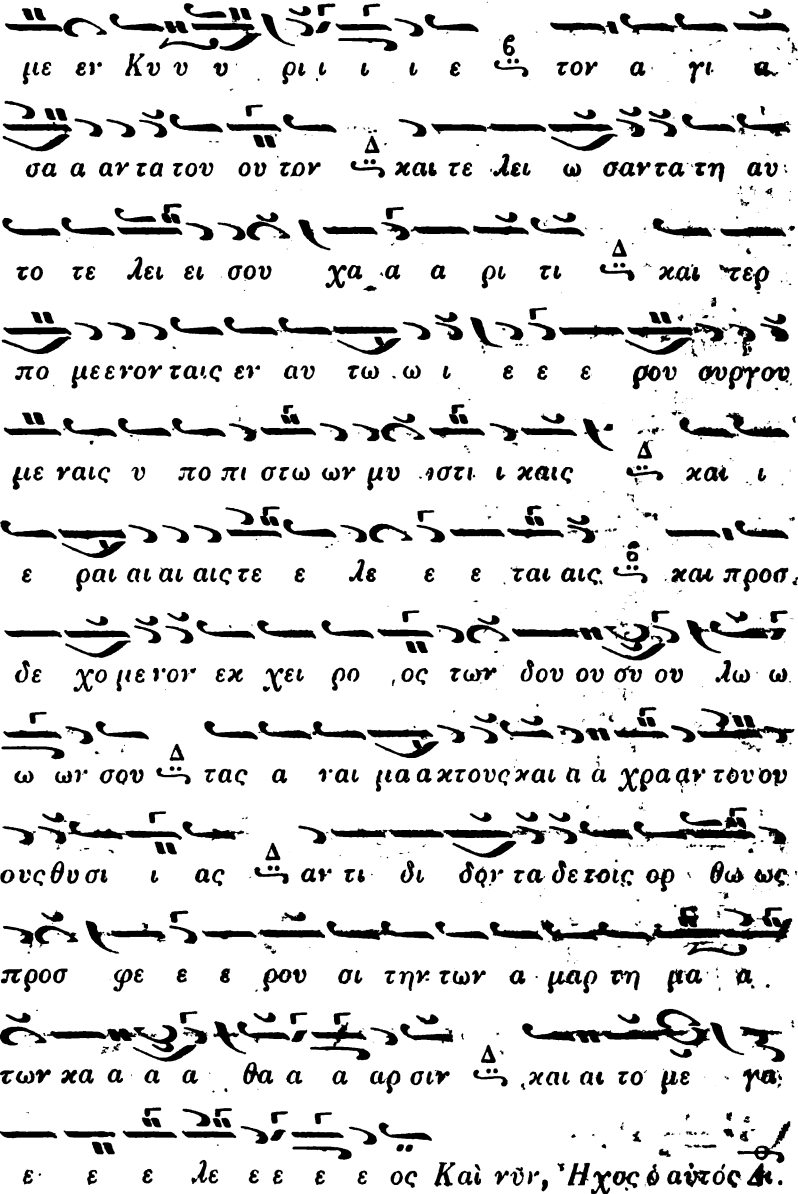 με εν Κυ υ υ ρι ι ι ι ι ε β τον α γι α
σα α αν τα του ου τον Δ και τε λει ω σαν τα τη αυ
το τε λει ει σου χα α α ρι τι Δ και τερ
πο με ε νον ταις εν αυ τω ω ι ε ε ε ρου ουργου
με ναις υ πο πι στω ων μυ στι ι καις Δ και ι
ε ραι αι αι αις τε ε λε ε ε ται αις και προσ
δε χο με νον εκ χει ρο ος των δου ου ου ου λω ω
ω ων σου Δ τας α ναι μα α κτους και α α χρα αν του ου
ους θυ σι ι ας Δ αν τι δι δον τα δε τοις ορ θω ως
προσ φε ε ε ρου σι την των α μαρ τη μα α
των κα α α α θα α α αρ σιν Δ και αι το με γα
ε ε ε λε ε ε ε ε ος Καὶ νῦν, Ἦχος ὁ αὐτός Δι.